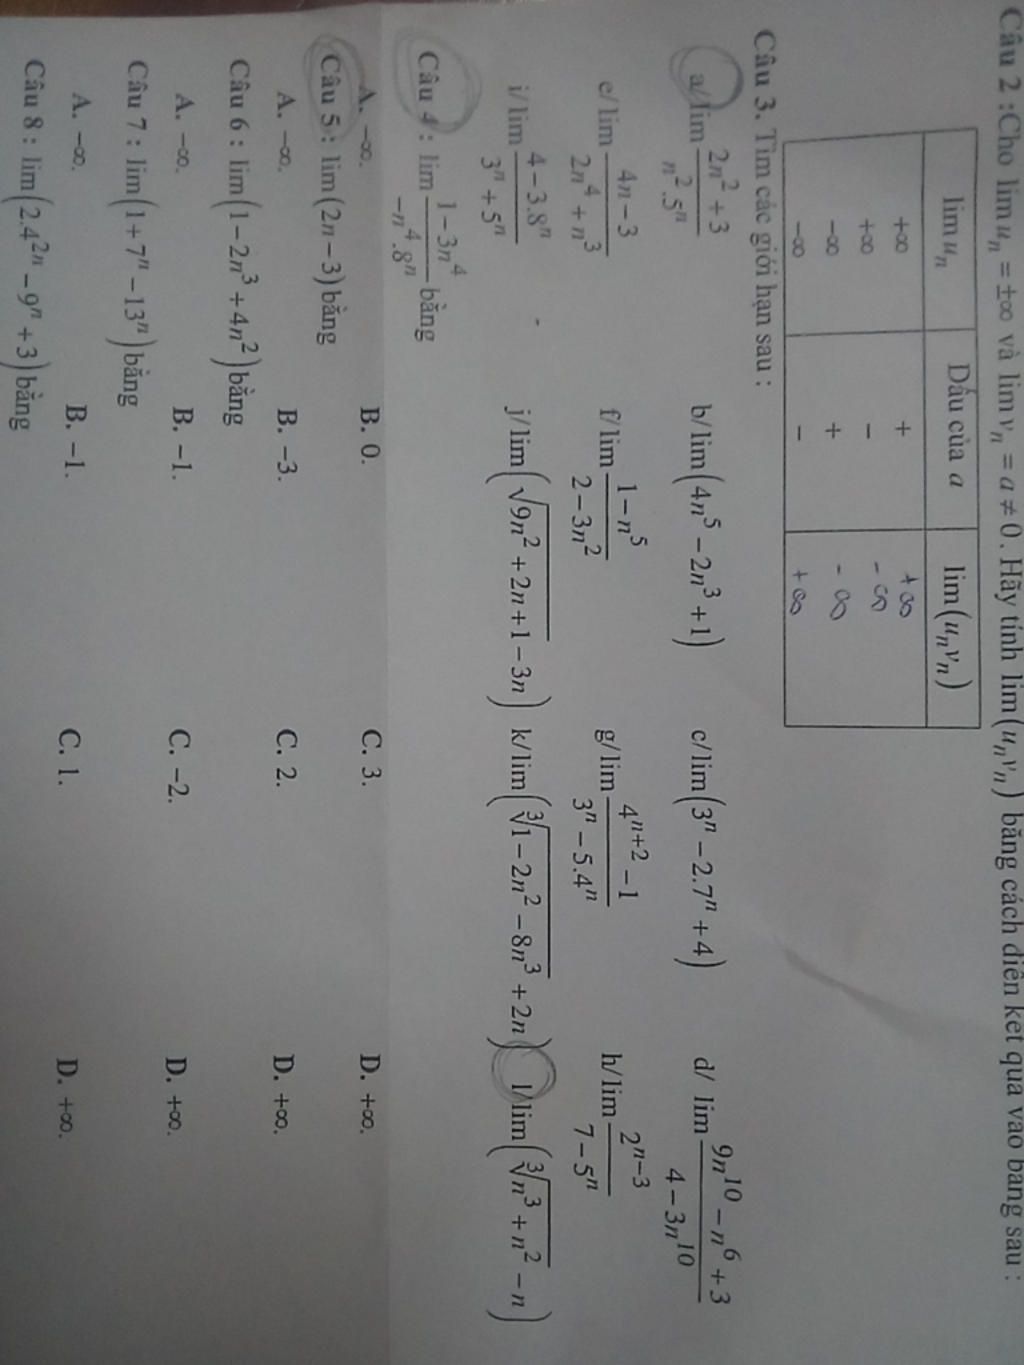 Câu 2 :Cho lim uₙ = ±∞ và lim vₙ = a ≠ 0. Hãy tính lim(uₙvₙ) bằng cách điền kết quả vào bảng sau :
lim uₙ Dấu của a lim(uₙvₙ)
+∞ + +∞
+∞ - -∞
-∞ + -∞
-∞ - +∞
Câu 3. Tìm các giới hạn sau :
a/ lim (2n² + 3)/(n².5ⁿ) b/ lim(4n⁵ - 2n³ + 1) c/ lim(3ⁿ - 2.7ⁿ + 4) d/ lim (9n¹⁰ - n⁶ + 3)/(4 - 3n¹⁰)
e/ lim (4n - 3)/(2n⁴ + n³) f/ lim (1 - n⁵)/(2 - 3n²) g/ lim (4ⁿ⁺² - 1)/(3ⁿ - 5.4ⁿ) h/ lim (2ⁿ⁻³)/(7 - 5ⁿ)
i/ lim (4 - 3.8ⁿ)/(3ⁿ + 5ⁿ) j/ lim(√(9n² + 2n + 1) - 3n) k/ lim(∛(1 - 2n² - 8n³) + 2n) l/ lim(∛(n³ + n²) - n)
Câu 4 : lim (1 - 3n⁴)/(-n⁴.8ⁿ) bằng
A. -∞. B. 0. C. 3. D. +∞.
Câu 5 : lim(2n - 3) bằng
A. -∞. B. -3. C. 2. D. +∞.
Câu 6 : lim(1 - 2n³ + 4n²) bằng
A. -∞. B. -1. C. -2. D. +∞.
Câu 7 : lim(1 + 7ⁿ - 13ⁿ) bằng
A. -∞. B. -1. C. 1. D. +∞.
Câu 8 : lim(2.4²ⁿ - 9ⁿ + 3) bằng